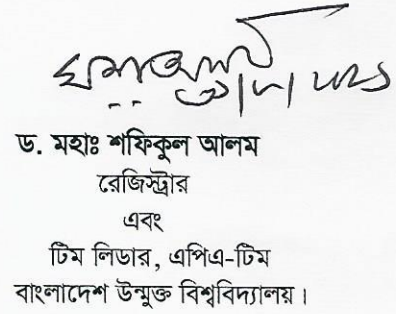 ড. মহাঃ শফিকুল আলম
রেজিস্ট্রার
এবং
টিম লিডার, এপিএ-টিম
বাংলাদেশ উন্মুক্ত বিশ্ববিদ্যালয়।